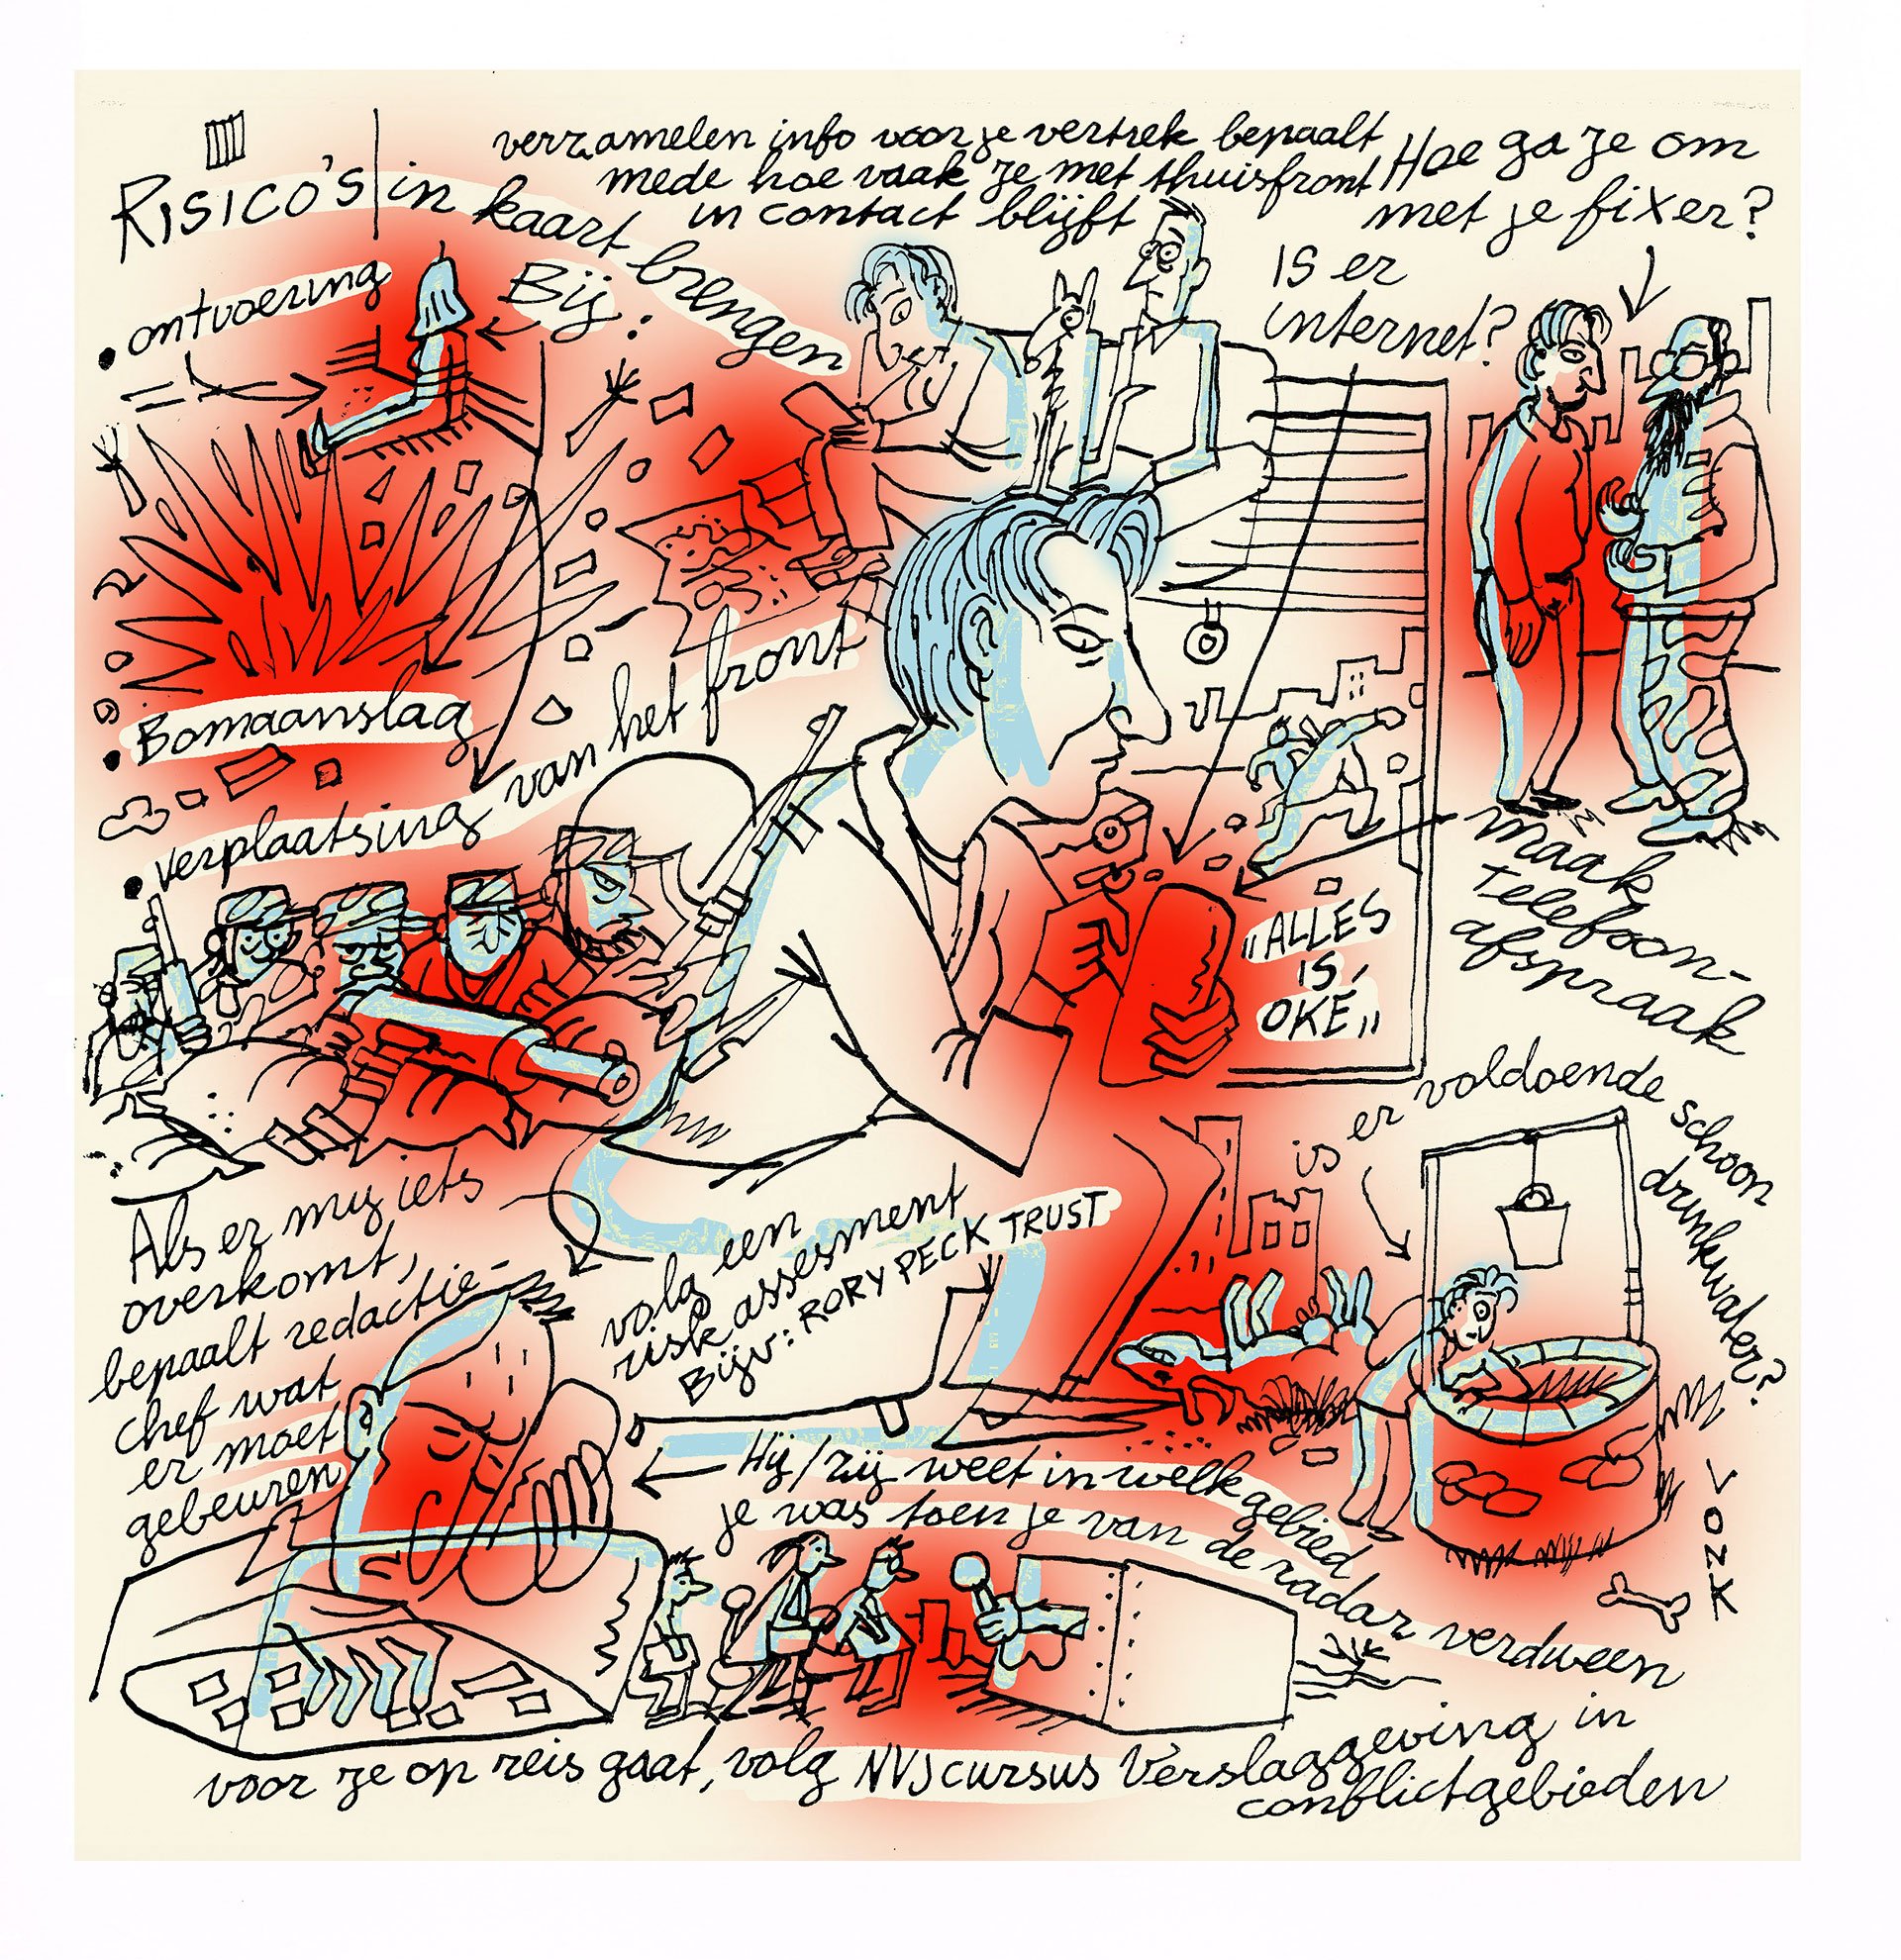 III
RISICO'S in kaart brengen
Bij:
• ontvoering
• Bomaanslag
• verplaatsing van het front
verzamelen info voor je vertrek bepaalt
mede hoe vaak je met thuisfront
in contact blijft
Hoe ga je om
met je fixer?
IS er
internet?
maak
telefoon-
afspraak
"ALLES
IS
OKÉ"
is er voldoende schoon
drinkwater?
Als er mij iets
overkomt,
bepaalt redactie-
chef wat
er moet
gebeuren
volg een
risk assesment
Bijv: RORY PECK TRUST
Hij/zij weet in welk gebied
je was toen je van de radar verdween
VONK
voor je op reis gaat, volg NVJ cursus Verslaggeving in
conflictgebieden